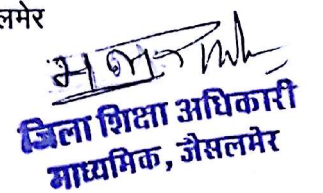 लमेर
जिला शिक्षा अधिकारी
माध्यमिक, जैसलमेर